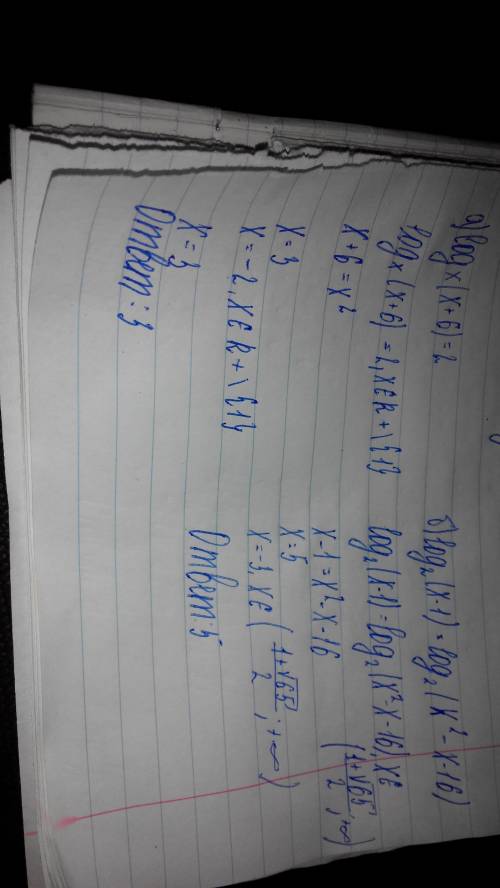 а) log x (x+6) = 2
log x (x+6) = 2, x ∈ R + \ {1}
x+6 = x²
x = 3
x = -2, x ∈ R + \ {1}
x = 3
Ответ: 3
б) log₂ (x-1) = log₂ (x² - x - 16)
log₂ (x-1) = log₂ (x² - x - 16), x ∈ (1+√65/2 ; +∞)
x-1 = x² - x - 16
x = 5
x = -3, x ∈ (1+√65/2 ; +∞)
Ответ: 5